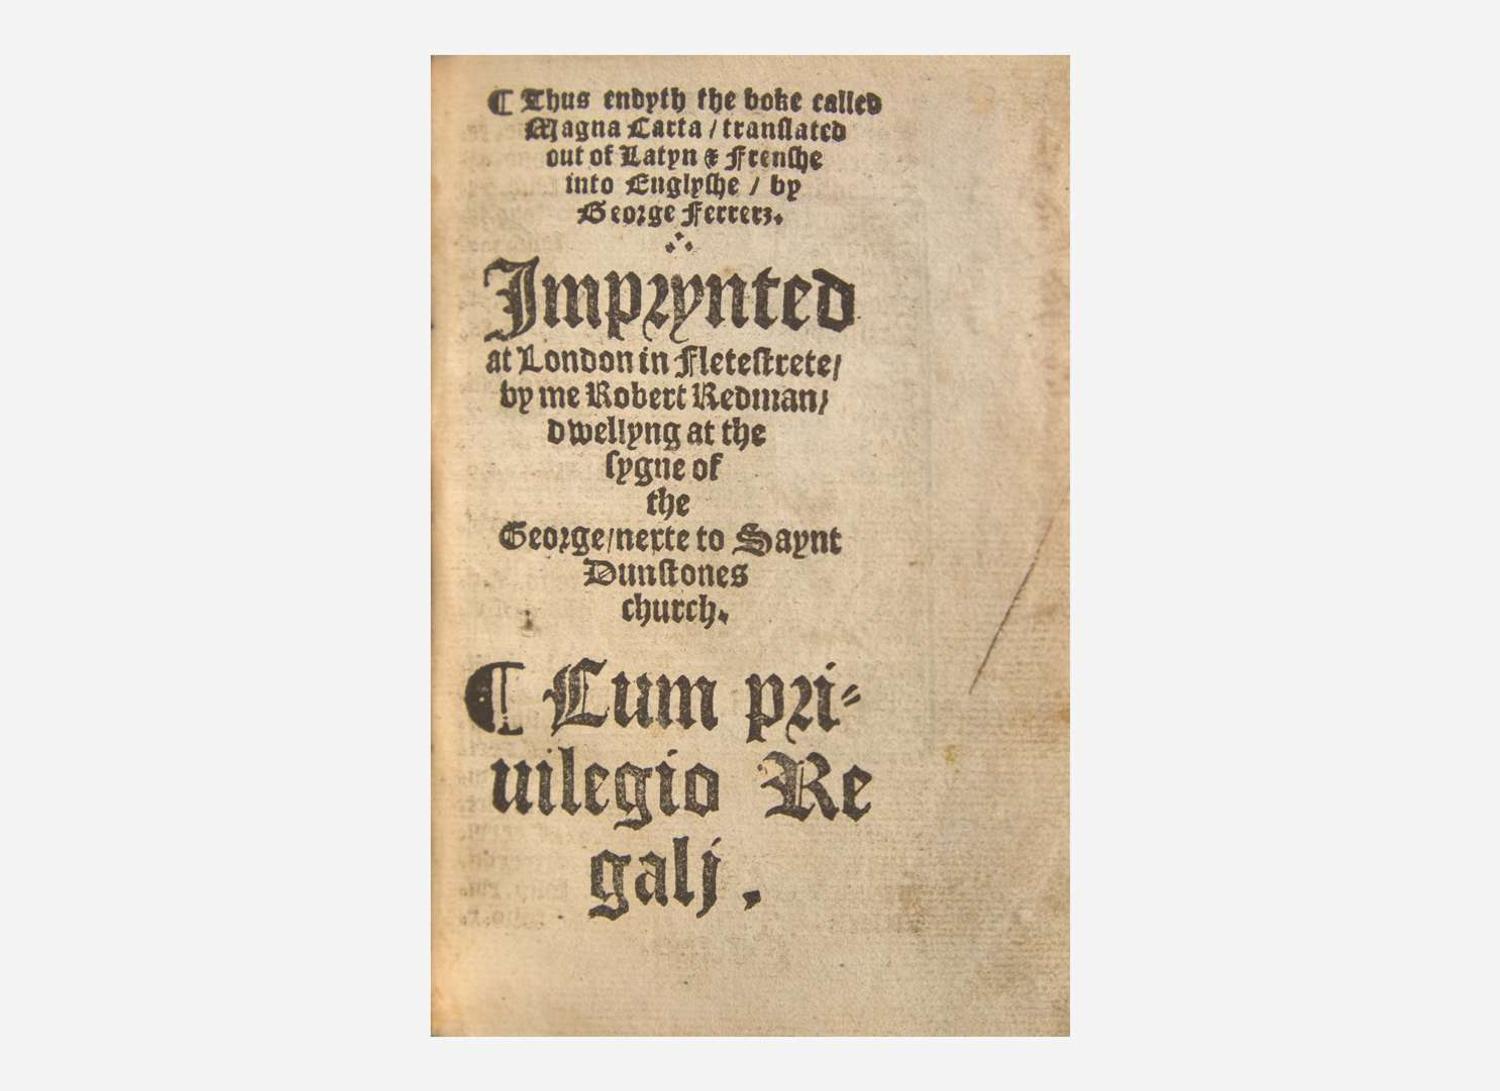 ¶ Thus endyth the boke called
Magna Carta / translated
out of Latyn & Frenshe
into Englyshe / by
George Ferrerz.
Imprynted
at London in Fletestrete/
by me Robert Redman/
dwellyng at the
sygne of
the
George/nexte to Saynt
Dunstones
church.
¶ Cum pri-
uilegio Re
galj.